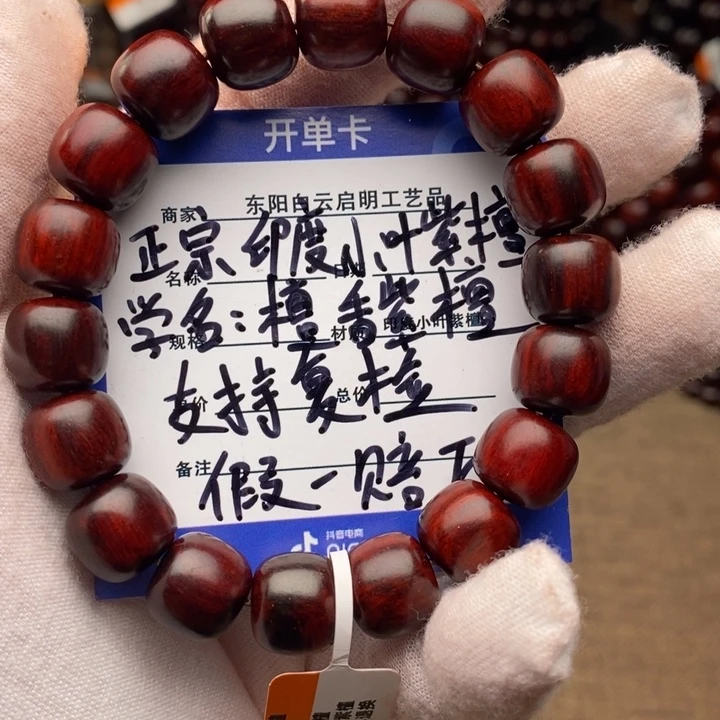 开单卡
商家 东阳白云启明工艺品
正宗印度小叶紫檀
名称
学名:檀香紫檀
规格 材质 印度小叶紫檀
支持复检
单价 总价
备注 假一赔
抖音电商